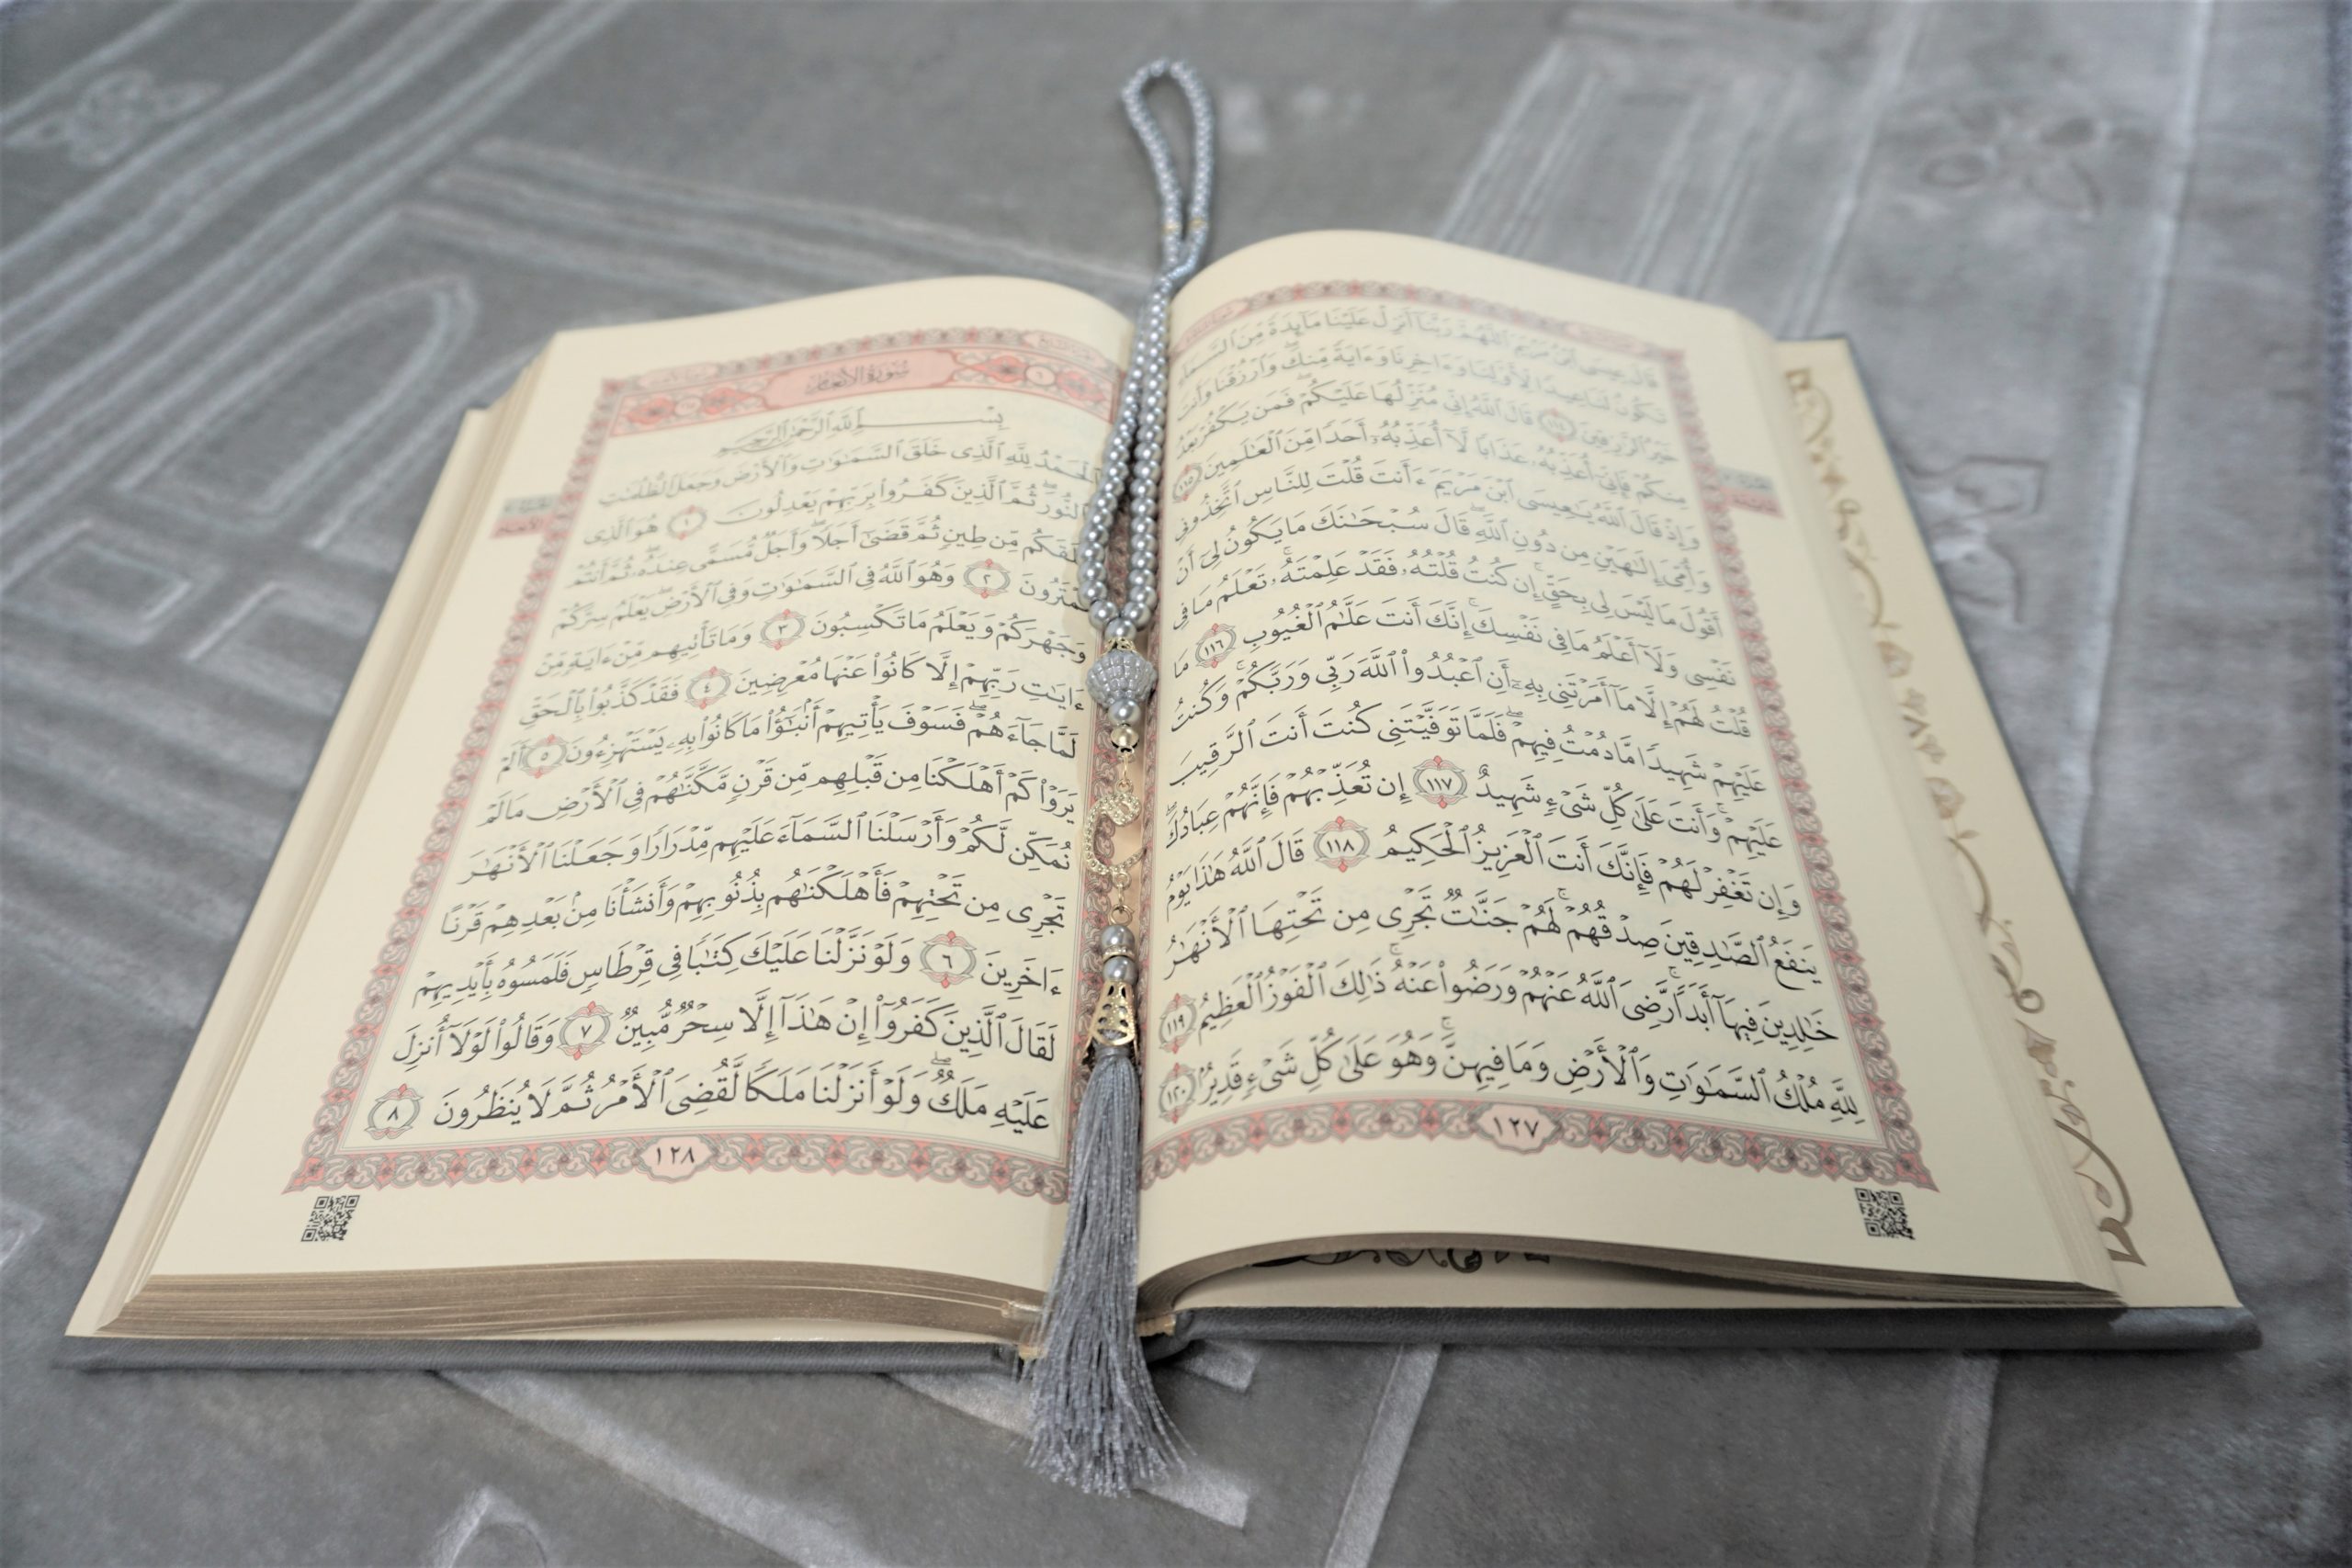 قَالَ عِيسَى ٱبْنُ مَرْيَمَ ٱللَّهُمَّ رَبَّنَآ أَنزِلْ عَلَيْنَا مَآئِدَةً مِّنَ ٱلسَّمَآءِ
تَكُونُ لَنَا عِيدًا لِّأَوَّلِنَا وَءَاخِرِنَا وَءَايَةً مِّنكَ ۖ وَٱرْزُقْنَا وَأَنتَ
خَيْرُ ٱلرَّٰزِقِينَ ١١٤ قَالَ ٱللَّهُ إِنِّى مُنَزِّلُهَا عَلَيْكُمْ ۖ فَمَن يَكْفُرْ بَعْدُ
مِنكُمْ فَإِنِّىٓ أُعَذِّبُهُۥ عَذَابًا لَّآ أُعَذِّبُهُۥٓ أَحَدًا مِّنَ ٱلْعَٰلَمِينَ ١١٥
وَإِذْ قَالَ ٱللَّهُ يَٰعِيسَى ٱبْنَ مَرْيَمَ ءَأَنتَ قُلْتَ لِلنَّاسِ ٱتَّخِذُونِى
وَأُمِّىَ إِلَٰهَيْنِ مِن دُونِ ٱللَّهِ ۖ قَالَ سُبْحَٰنَكَ مَا يَكُونُ لِىٓ أَنْ
أَقُولَ مَا لَيْسَ لِى بِحَقٍّ ۚ إِن كُنتُ قُلْتُهُۥ فَقَدْ عَلِمْتَهُۥ ۚ تَعْلَمُ مَا فِى
نَفْسِى وَلَآ أَعْلَمُ مَا فِى نَفْسِكَ ۚ إِنَّكَ أَنتَ عَلَّٰمُ ٱلْغُيُوبِ ١١٦ مَا
قُلْتُ لَهُمْ إِلَّا مَآ أَمَرْتَنِى بِهِۦٓ أَنِ ٱعْبُدُوا۟ ٱللَّهَ رَبِّى وَرَبَّكُمْ ۚ وَكُنتُ
عَلَيْهِمْ شَهِيدًا مَّا دُمْتُ فِيهِمْ ۖ فَلَمَّا تَوَفَّيْتَنِى كُنتَ أَنتَ ٱلرَّقِيبَ
عَلَيْهِمْ ۚ وَأَنتَ عَلَىٰ كُلِّ شَىْءٍ شَهِيدٌ ١١٧ إِن تُعَذِّبْهُمْ فَإِنَّهُمْ عِبَادُكَ ۖ
وَإِن تَغْفِرْ لَهُمْ فَإِنَّكَ أَنتَ ٱلْعَزِيزُ ٱلْحَكِيمُ ١١٨ قَالَ ٱللَّهُ هَٰذَا يَوْمُ
يَنفَعُ ٱلصَّٰدِقِينَ صِدْقُهُمْ ۚ لَهُمْ جَنَّٰتٌ تَجْرِى مِن تَحْتِهَا ٱلْأَنْهَٰرُ
خَٰلِدِينَ فِيهَآ أَبَدًا ۚ رَّضِىَ ٱللَّهُ عَنْهُمْ وَرَضُوا۟ عَنْهُ ۚ ذَٰلِكَ ٱلْفَوْزُ ٱلْعَظِيمُ ١١٩
لِلَّهِ مُلْكُ ٱلسَّمَٰوَٰتِ وَٱلْأَرْضِ وَمَا فِيهِنَّ ۚ وَهُوَ عَلَىٰ كُلِّ شَىْءٍ قَدِيرٌۢ ١٢٠
١٢٧
سُورَةُ الأَنْعَام
بِسْمِ ٱللَّهِ ٱلرَّحْمَٰنِ ٱلرَّحِيمِ
ٱلْحَمْدُ لِلَّهِ ٱلَّذِى خَلَقَ ٱلسَّمَٰوَٰتِ وَٱلْأَرْضَ وَجَعَلَ ٱلظُّلُمَٰتِ
وَٱلنُّورَ ۖ ثُمَّ ٱلَّذِينَ كَفَرُوا۟ بِرَبِّهِمْ يَعْدِلُونَ ١ هُوَ ٱلَّذِى
خَلَقَكُم مِّن طِينٍ ثُمَّ قَضَىٰٓ أَجَلًا ۖ وَأَجَلٌ مُّسَمًّى عِندَهُۥ ۖ ثُمَّ أَنتُمْ
تَمْتَرُونَ ٢ وَهُوَ ٱللَّهُ فِى ٱلسَّمَٰوَٰتِ وَفِى ٱلْأَرْضِ ۖ يَعْلَمُ سِرَّكُمْ
وَجَهْرَكُمْ وَيَعْلَمُ مَا تَكْسِبُونَ ٣ وَمَا تَأْتِيهِم مِّنْ ءَايَةٍ مِّنْ
ءَايَٰتِ رَبِّهِمْ إِلَّا كَانُوا۟ عَنْهَا مُعْرِضِينَ ٤ فَقَدْ كَذَّبُوا۟ بِٱلْحَقِّ
لَمَّا جَآءَهُمْ ۖ فَسَوْفَ يَأْتِيهِمْ أَنۢبَٰٓؤُا۟ مَا كَانُوا۟ بِهِۦ يَسْتَهْزِءُونَ ٥ أَلَمْ
يَرَوْا۟ كَمْ أَهْلَكْنَا مِن قَبْلِهِم مِّن قَرْنٍ مَّكَّنَّٰهُمْ فِى ٱلْأَرْضِ مَا لَمْ
نُمَكِّن لَّكُمْ وَأَرْسَلْنَا ٱلسَّمَآءَ عَلَيْهِم مِّدْرَارًا وَجَعَلْنَا ٱلْأَنْهَٰرَ
تَجْرِى مِن تَحْتِهِمْ فَأَهْلَكْنَٰهُم بِذُنُوبِهِمْ وَأَنشَأْنَا مِنۢ بَعْدِهِمْ قَرْنًا
ءَاخَرِينَ ٦ وَلَوْ نَزَّلْنَا عَلَيْكَ كِتَٰبًا فِى قِرْطَاسٍ فَلَمَسُوهُ بِأَيْدِيهِمْ
لَقَالَ ٱلَّذِينَ كَفَرُوٓا۟ إِنْ هَٰذَآ إِلَّا سِحْرٌ مُّبِينٌ ٧ وَقَالُوا۟ لَوْلَآ أُنزِلَ
عَلَيْهِ مَلَكٌ ۖ وَلَوْ أَنزَلْنَا مَلَكًا لَّقُضِىَ ٱلْأَمْرُ ثُمَّ لَا يُنظَرُونَ ٨
١٢٨